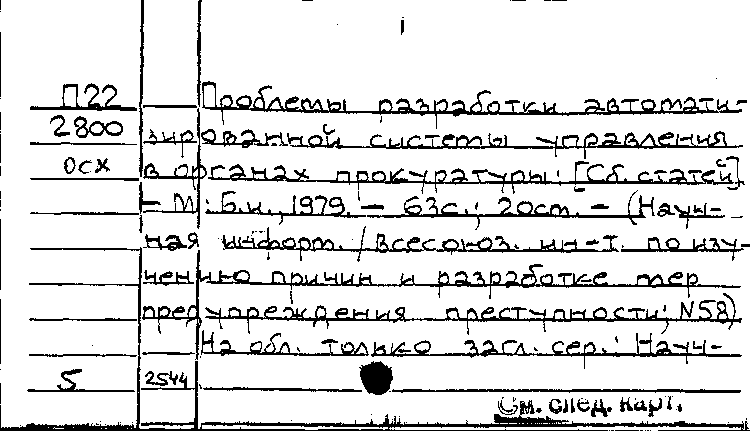 П22 Проблемы разработки автомати-
2800 зированной системы управления
осх в органах прокуратуры: [Сб. статей]
– М.: Б.и., 1979. – 63с.; 20см. – (Науч-
ная информ. / Всесоюз. ин-т. по изу-
чению причин и разработке мер
предупреждения преступности; N58)
На обл. только загл. сер.: Науч-
5 2544
См. след. карт.